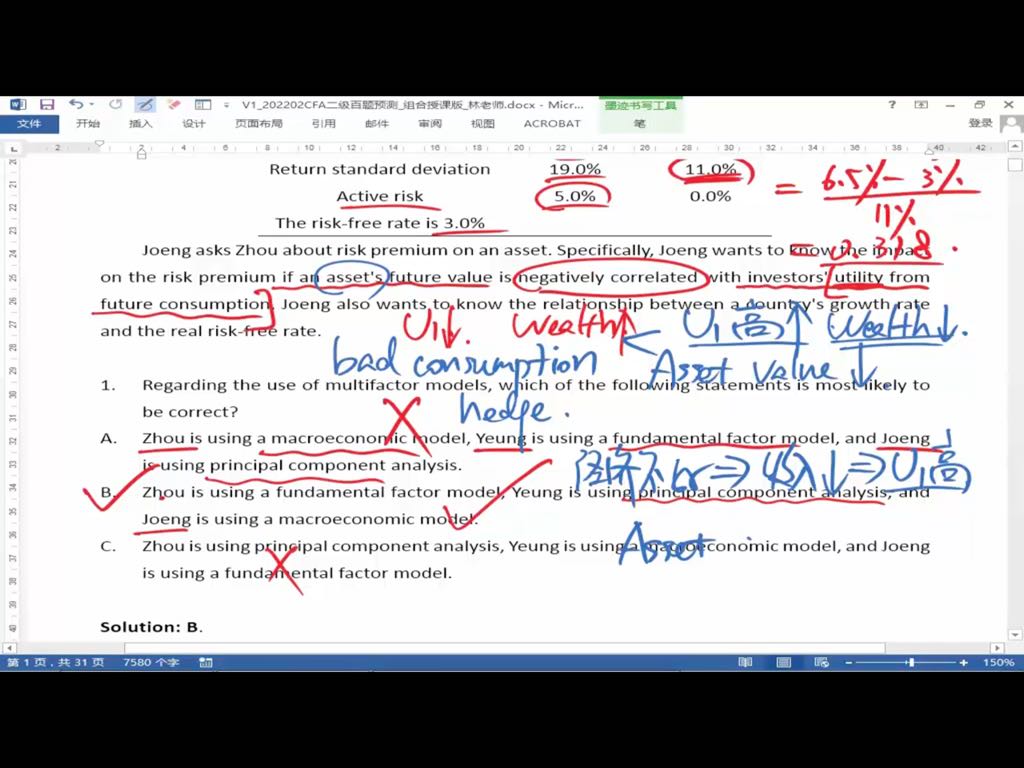 V1_202202CFA二级百题预测_组合授课版_林老师.docx - Micr...
墨迹书写工具
文件 开始 插入 设计 页面布局 引用 邮件 审阅 视图 ACROBAT 笔 登录
2 2 4 6 8 10 12 14 16 18 20 22 24 26 28 30 32 34 36 38 40 42
Return standard deviation 19.0% 11.0%
Active risk 5.0% 0.0%
The risk-free rate is 3.0%
= 6.5% - 3%
11%
= 0.318
Joeng asks Zhou about risk premium on an asset. Specifically, Joeng wants to know the impact
on the risk premium if an asset's future value is negatively correlated with investors' utility from
future consumption. Joeng also wants to know the relationship between a country's growth rate
and the real risk-free rate.
U1↓. Wealth↑ U1高↑ Wealth↓.
bad consumption Asset value ↓.
hedge.
1. Regarding the use of multifactor models, which of the following statements is most likely to
be correct?
A. Zhou is using a macroeconomic model, Yeung is using a fundamental factor model, and Joeng
is using principal component analysis.
经济不好⇒收入↓⇒U1高
B. Zhou is using a fundamental factor model, Yeung is using principal component analysis, and
Joeng is using a macroeconomic model.
Asset
C. Zhou is using principal component analysis, Yeung is using a macroeconomic model, and Joeng
is using a fundamental factor model.
Solution: B.
第 1 页，共 31 页 7580 个字 150%